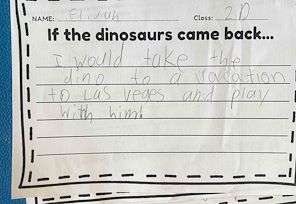 NAME: Elijah Class: 2D
If the dinosaurs came back...
I would take the
dino to a vacation
to Las veges and play
with him!